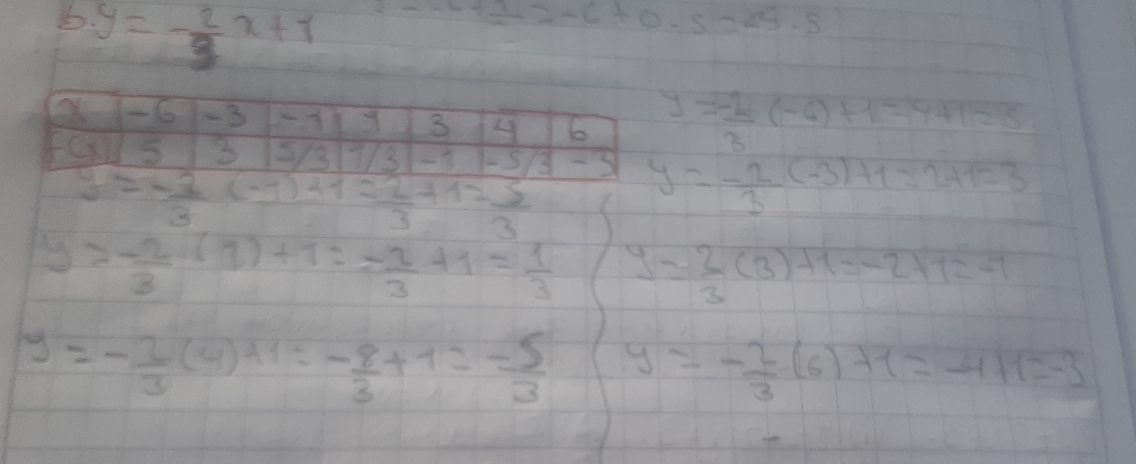 b. y = -2/3 x + 1
= -6 + 0.5 = -5.5
x -6 -3 -1 1 3 4 6
5 3 5/3 1/3 -1 -5/3 -3
y = -2/3 (-6) + 1 = 4 + 1 = 5
y = -2/3 (-3) + 1 = 2 + 1 = 3
y = -2/3 (-1) + 1 = 2/3 + 1 = 5/3
y = -2/3 (1) + 1 = -2/3 + 1 = 1/3
y = 2/3 (3) + 1 = -2 + 1 = -1
y = -2/3 (4) + 1 = -8/3 + 1 = -5/3
y = -2/3 (6) + 1 = -4 + 1 = -3